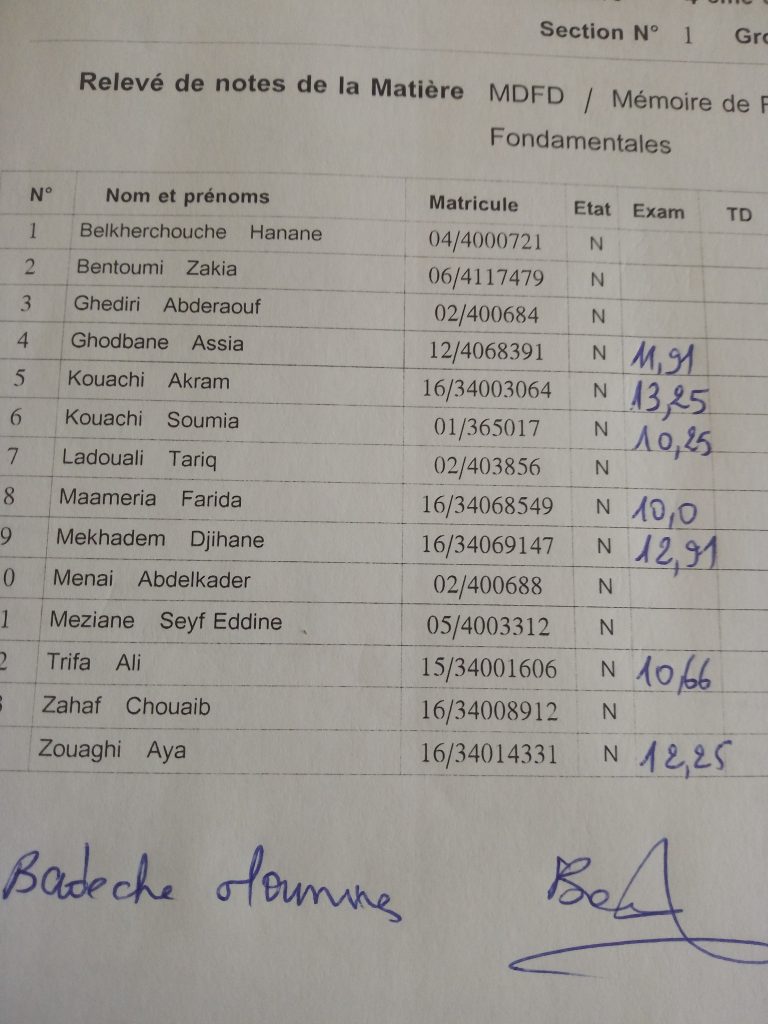 Section N° 1 Gro
Relevé de notes de la Matière MDFD / Mémoire de F
Fondamentales
N° Nom et prénoms Matricule Etat Exam TD
1 Belkherchouche Hanane 04/4000721 N
2 Bentoumi Zakia 06/4117479 N
3 Ghediri Abderaouf 02/400684 N
4 Ghodbane Assia 12/4068391 N 11,91
5 Kouachi Akram 16/34003064 N 13,25
6 Kouachi Soumia 01/365017 N 10,25
7 Ladouali Tariq 02/403856 N
8 Maameria Farida 16/34068549 N 10,0
9 Mekhadem Djihane 16/34069147 N 12,91
0 Menai Abdelkader 02/400688 N
1 Meziane Seyf Eddine 05/4003312 N
2 Trifa Ali 15/34001606 N 10,66
3 Zahaf Chouaib 16/34008912 N
Zouaghi Aya 16/34014331 N 12,25
Badeche